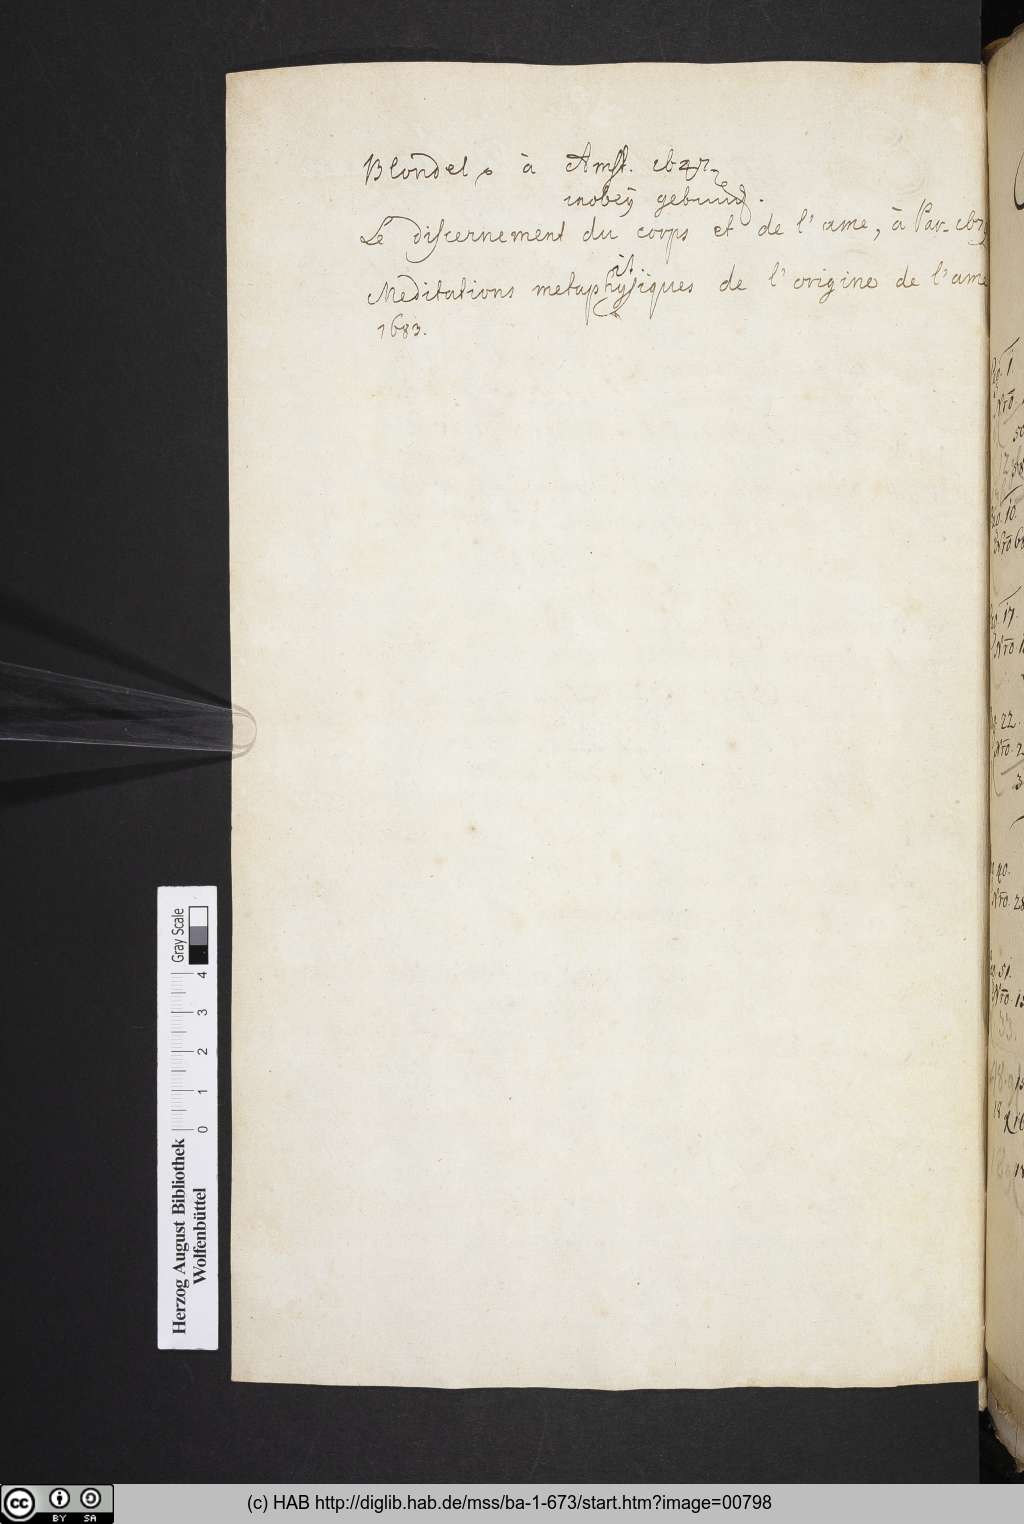 Blondel, à Amst.
wobeÿ gebund.
Le discernement du corps et de l'ame, à Par.
Meditations metaphysiques de l'origine de l'ame
it.
1683.
Po. 1.
Nro
Po. 10.
Nro 6
17.
Nro 1
22.
Nro. 2
40.
Nro. 28
51.
Nro. 15
Gray Scale
0 1 2 3 4
Herzog August Bibliothek
Wolfenbüttel
cc BY SA
(c) HAB http://diglib.hab.de/mss/ba-1-673/start.htm?image=00798